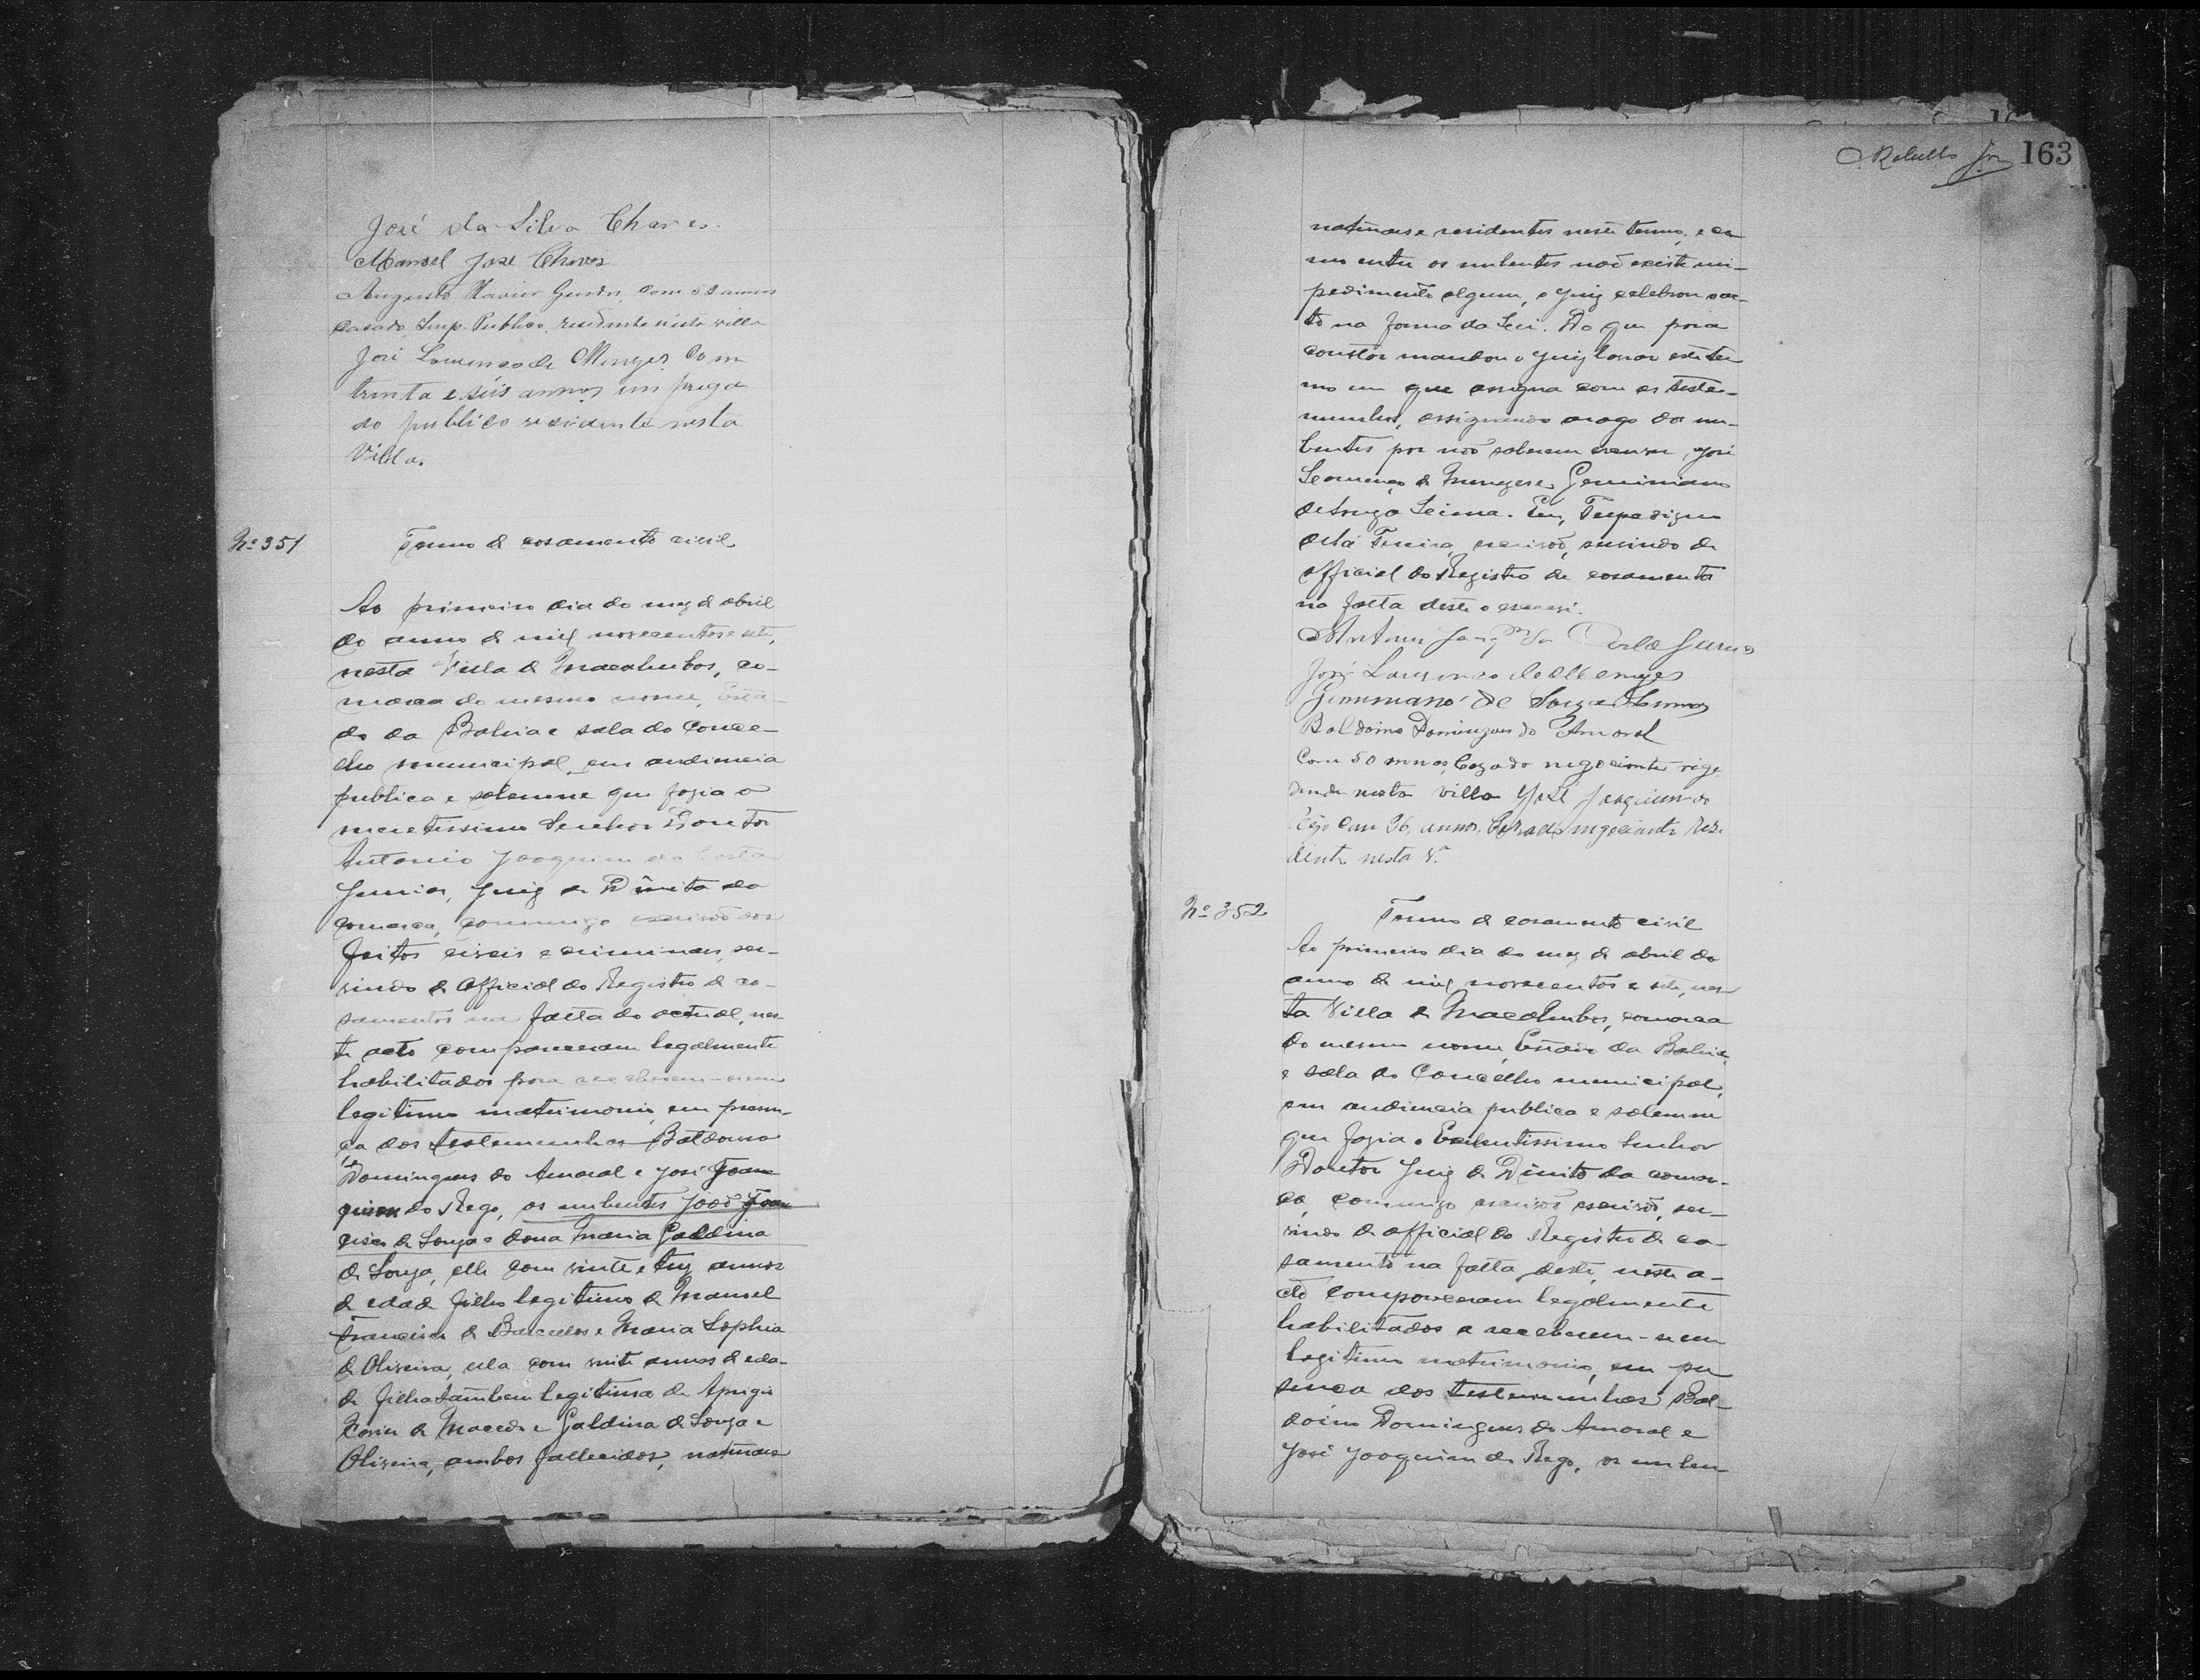 José da Silva Chaves.
Manoel José Chaves
Augusto Xavier com 58 annos
casado Emp. Publico, residente nésta villa
José Lourenço de Menezes com
trinta e seis annos em prega
do publico residente nesta
Villa.
Nº 351
Termo de casamento civil
Ao primeiro dia do mez de abril
do anno de mil novecentos e sete,
nesta Villa de Macahubas, co-
marca do mesmo nome, Esta-
do da Bahia e sala do Conce-
lho municipal, em audiencia
publica e solemne que fazia o
meretissimo Senhor Doutor
Antonio Joaquim da Costa
Junior, Juiz de Direito da
comarca, commigo escrivão dos
feitos civeis e criminaes, ser-
vindo de Official do Registro de ca-
samentos na falta do actual, nes-
te acto compareceram legalmente
habilitados para receberem-se em
legitimo matrimonio, em presen-
ça das testemunhas Baldoino
Domingues do Amaral e José Joa
quim do Rego, os nubentes João Fran
cisco de Souza e dona Maria Galdina
de Souza, elle com vinte e trez annos
de edade filho legitimo de Manoel
Francisco de Barcellos e Maria Sophia
de Oliveira, ella com vinte annos de eda-
de filha tambem legitima de Aprigio
Xavier de Macedo e Galdina de Souza e
Oliveira, ambos fallecidos, naturaes
C. Rebello Jor 163
naturaes e residentes neste termo, e co
mo entre os nubentes não existe im-
pedimento algum, o Juiz celebrou o ac-
to na forma da Lei. Do que para
constar mandou o Juiz lavrar este ter
mo em que assigna com as teste-
munhas, assignando arogo dos nu-
bentes por não saberem escrever, José
Lourenço de Menezes e Geminiano
de Souza Leima. Eu,
Ferreira, escrivão, servindo de
official do Registro de casamento
na falta deste o escrevi.
Antonio Joaqm da Costa Junior
José Lourenço de Menezes
Geminiano de Souza
Baldoino Domingues do Amaral
Com 50 annos, Cazado negociante rezi
dende nesta villa José Joaquim do
Rêgo Com 36 annos, Cazado negociante Rezi
dente nesta Vª
Nº 352
Termo de casamento civil
Ao primeiro dia do mez de abril do
anno de mil novecentos e sete, nes
ta Villa de Macahubas, comarca
do mesmo nome, Estado da Bahia,
e sala do Concelho municipal,
em audiencia publica e solemne
que fazia o Excelentissimo Senhor
Doutor Juiz de Direito da comar-
ca, commigo escrivão escrivão, ser-
vindo de official do Registro de ca-
samento na falta deste, neste a-
cto compareceram legalmente
habilitados a receberem-se em
legitimo matrimonio, em pre
sença das testemunhas Bal-
doino Domingues do Amaral e
José Joaquim do Rego, os nuben-